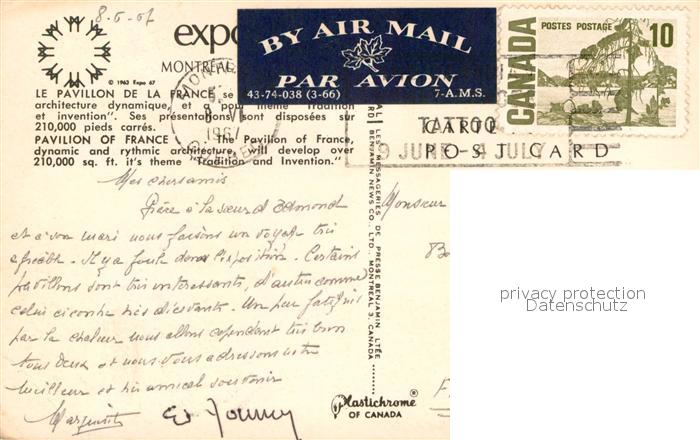 8.6.67
expo
MONTRÉAL
© 1963 Expo 67
BY AIR MAIL
PAR AVION
43-74-038 (3-66) 7-A.M.S.
POSTES POSTAGE
10
CANADA
LE PAVILLON DE LA FRANCE se
architecture dynamique, et a pour thème "Tradition
et invention". Ses présentations sont disposées sur
210,000 pieds carrés.
PAVILION OF FRANCE The Pavilion of France,
dynamic and rythmic architecture, will develop over
210,000 sq. ft. it's theme "Tradition and Invention."
MONTREAL
1967
TATTOO
9 JUNE - 4 JULY
CARTE
POST CARD
LES MESSAGERIES DE PRESSE BENJAMIN LTÉE
BENJAMIN NEWS CO. LTD. MONTREAL 3, CANADA
Mes chers amis
Grâce à la sœur d'Edmond
et à son mari nous faisons un voyage très
agréable. Il y a foule dans l'exposition. Certains
pavillons sont très intéressants, d'autres comme
celui ci contre très décevants. Un peu fatigués
par la chaleur nous allons cependant très bien
tous deux et nous vous adressons notre
meilleur et très amical souvenir
Marguerite
Monsieur
privacy protection
Datenschutz
Plastichrome
OF CANADA